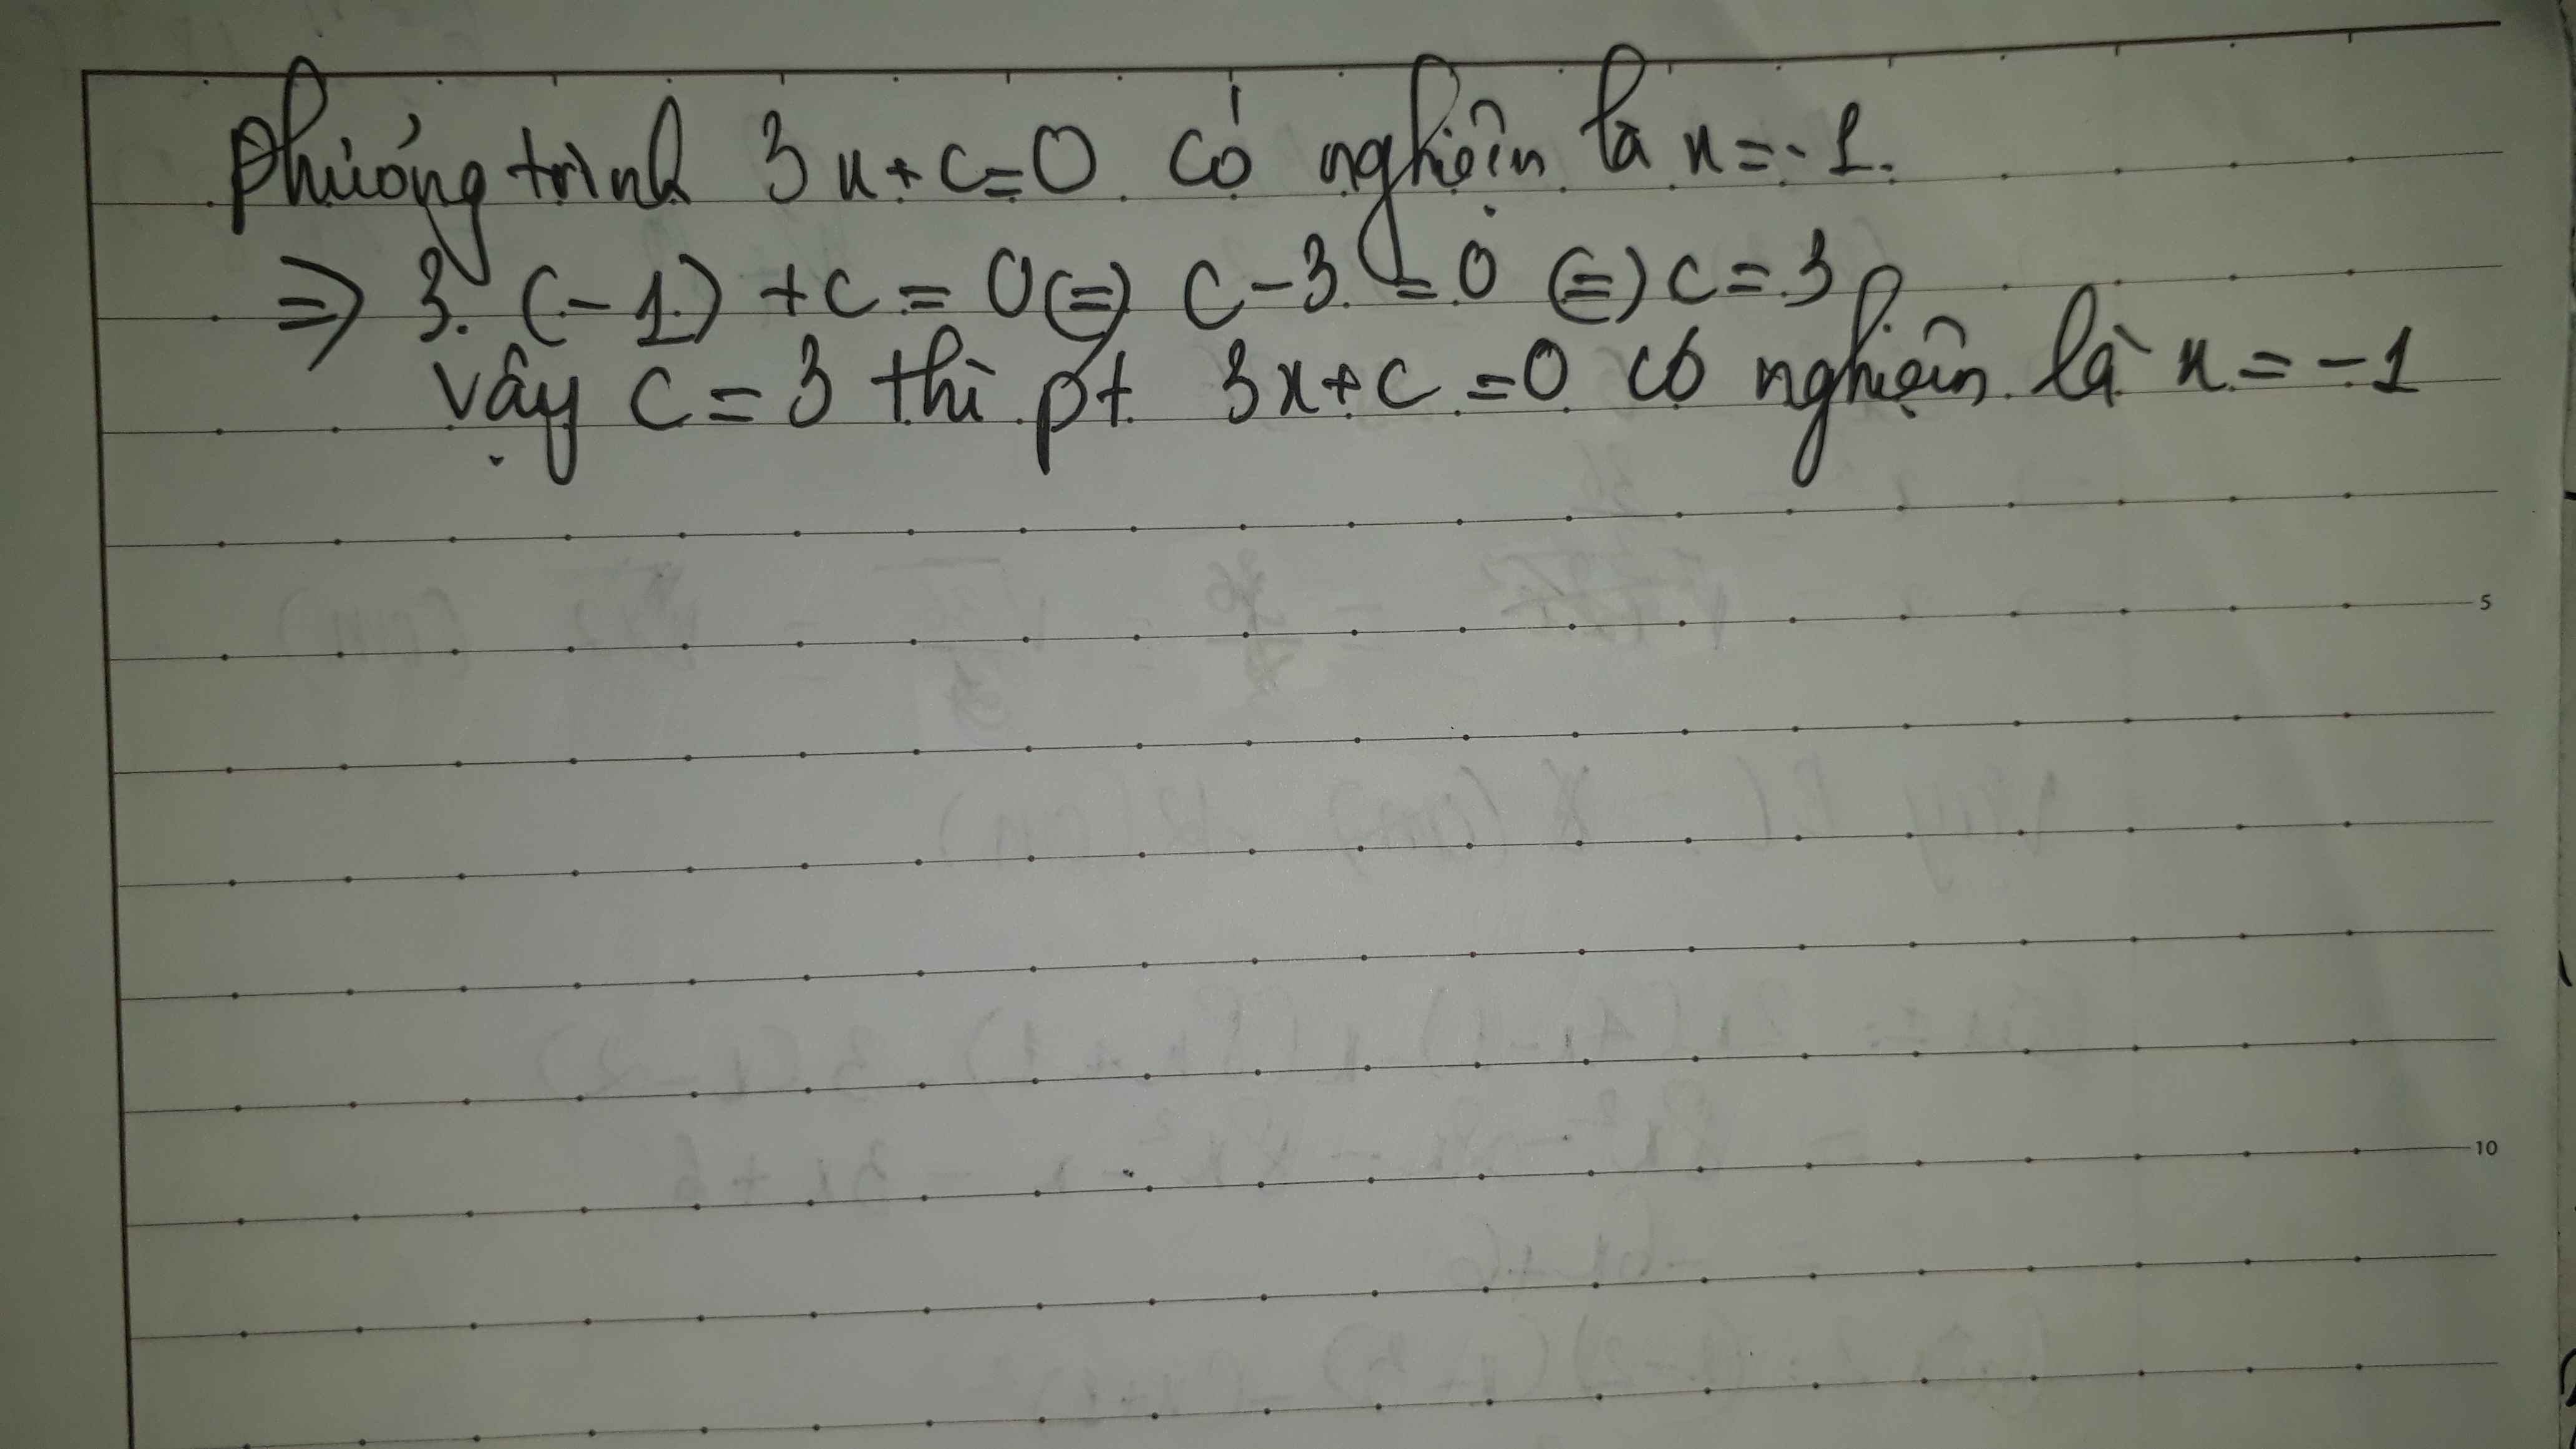 Phương trình 3x+c=0 có nghiệm là x=-1.
=> 3.(-1)+c=0 (=) c-3=0 (=) c=3
Vậy c=3 thì pt 3x+c=0 có nghiệm là x=-1
5
10